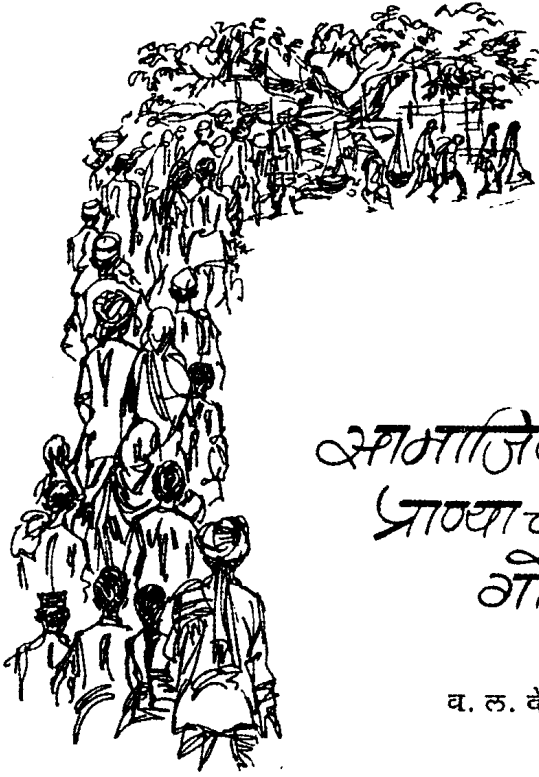 सामाजि
प्राण्याच
गो
व. ल. वे